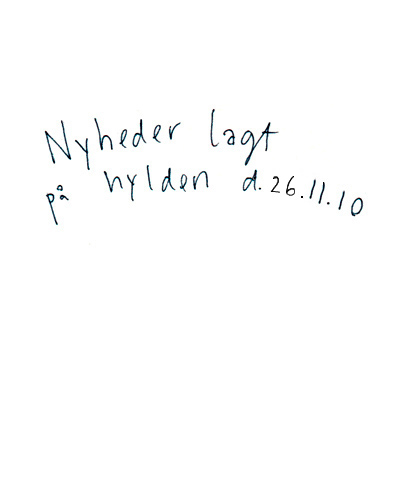 Nyheder lagt
på hylden d. 26.11.10